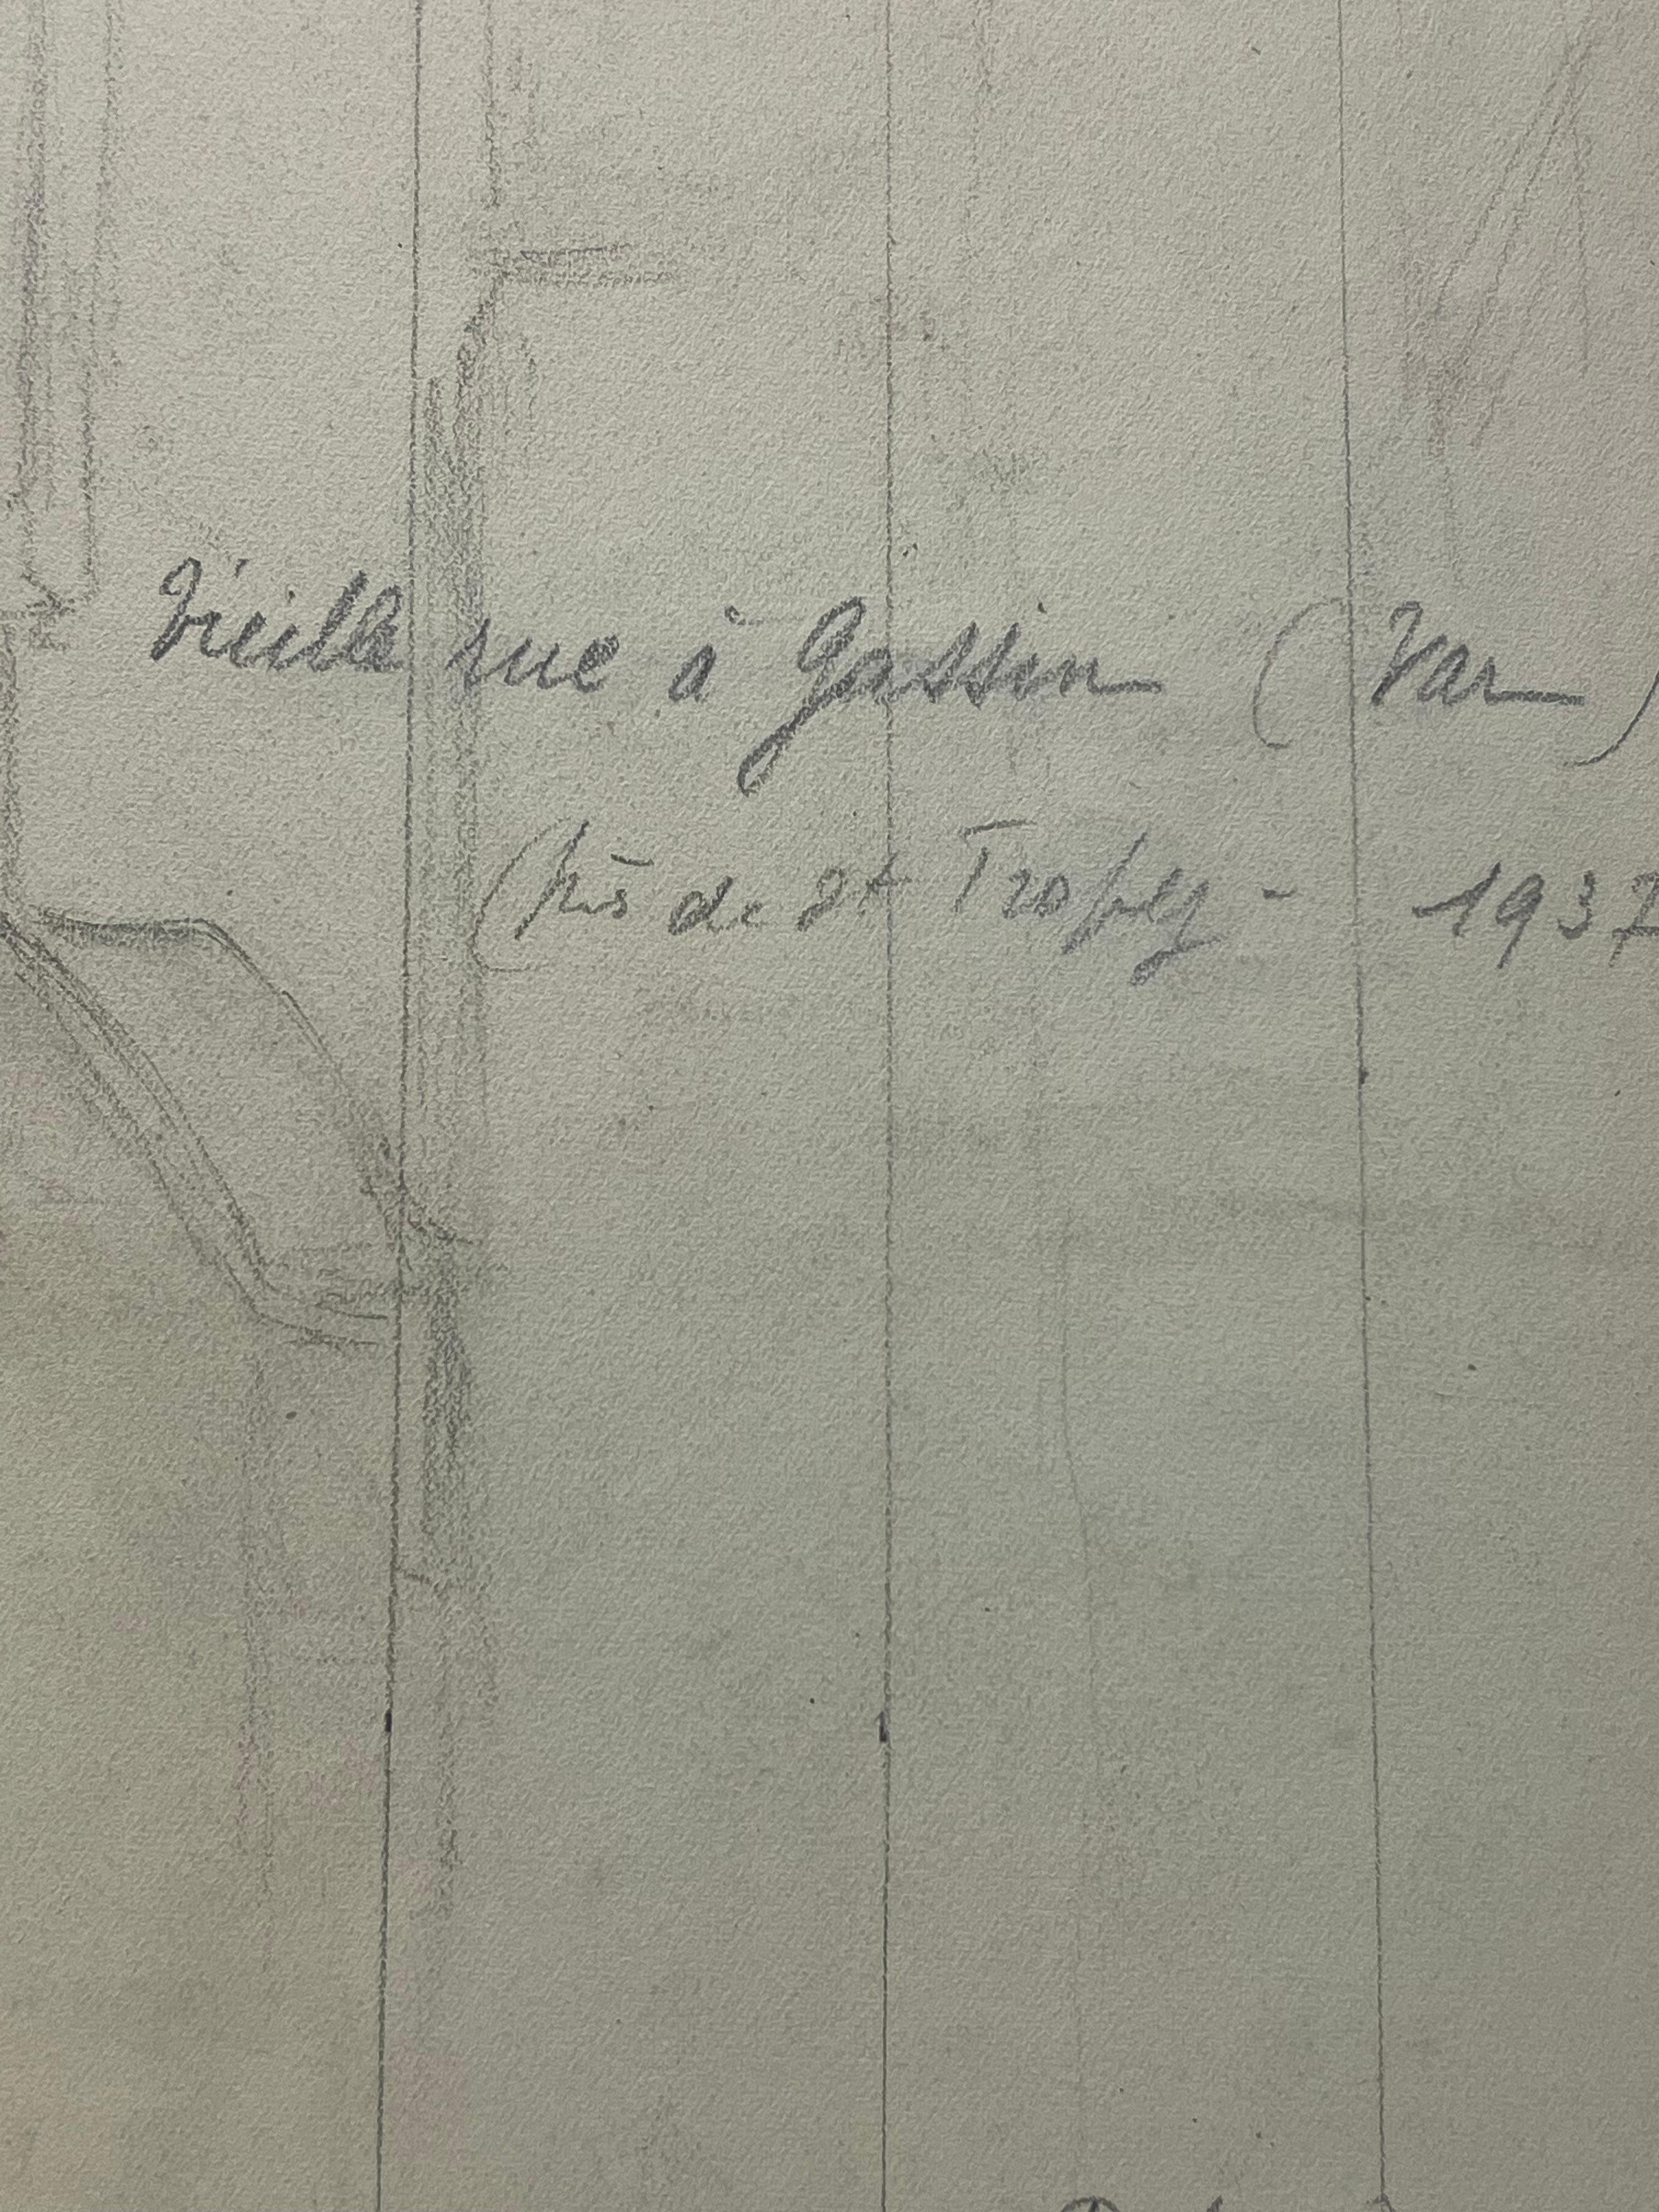 Vieille rue à Gassin (Var)
(près de St Tropez - 1937